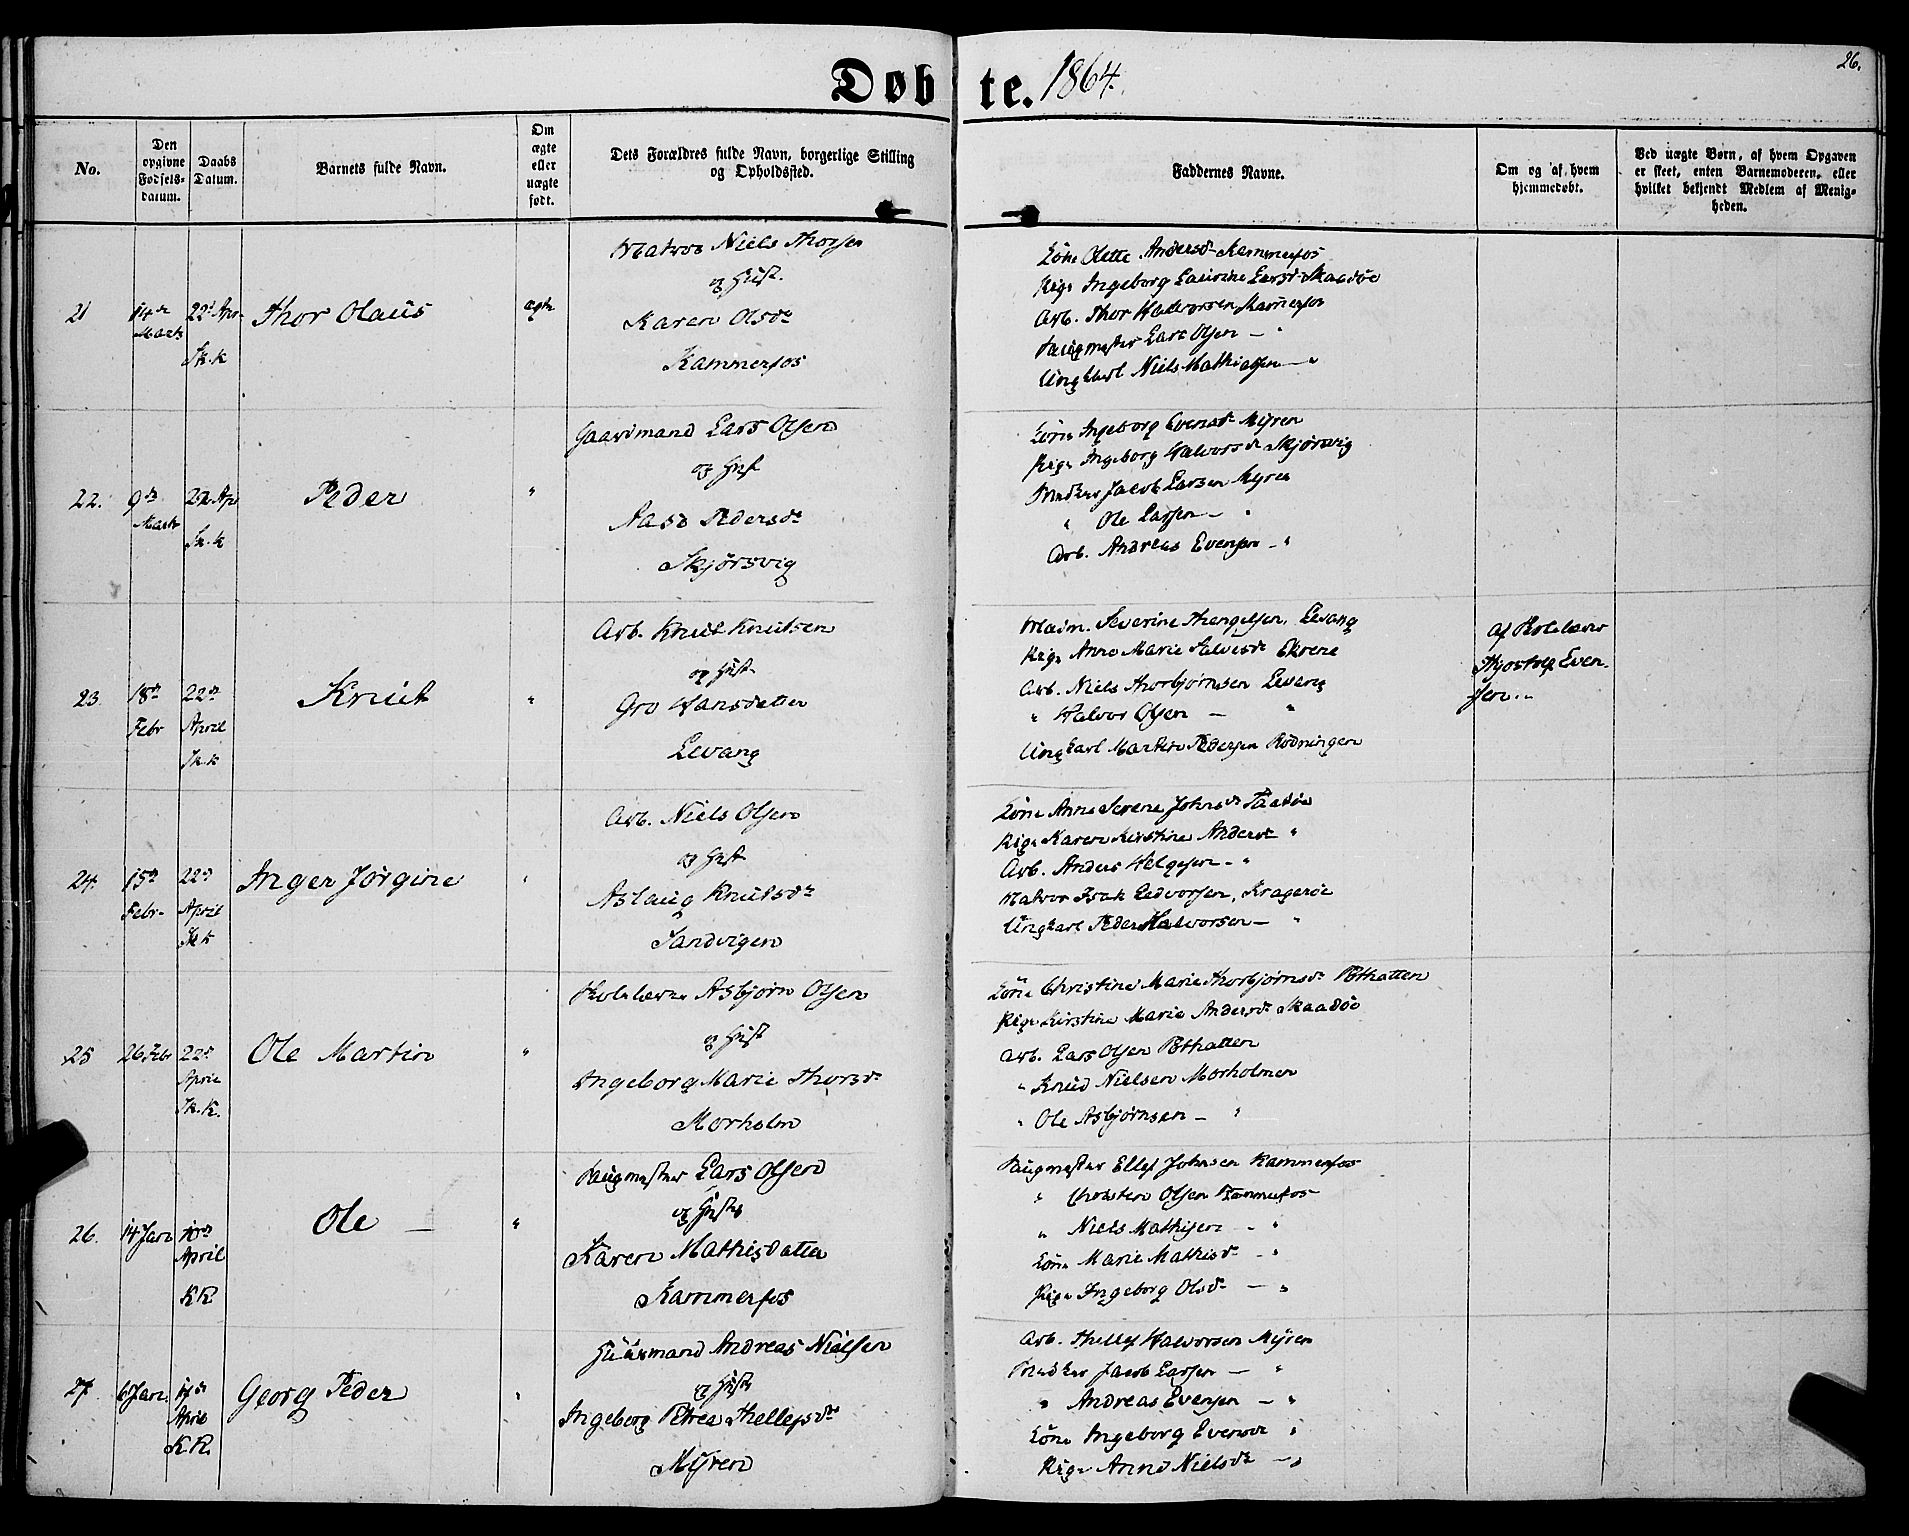 Døbte. 1864.
26.
No.
Den opgivne Fødsels-datum.
Daabs Datum.
Barnets fulde Navn.
Om ægte eller uægte født.
Dets Forældres fulde Navn, borgerlige Stilling og Opholdssted.
Faddernes Navne.
Om og af hvem hjemmedøbt.
Ved uægte Børn, af hvem Opgaven er skeet, enten Barnemoderen, eller hvilket bekjendt Medlem af Menigheden.
21
14de Marts
22d Apr.
Sk. k
Thor Olaus
ægte
Matros Niels Thorsen
og Hust.
Karen Olsdr
Kammerfos
Kone Olette Andersdr Kammerfos
Pige Ingeborg Laurine Larsdr Skaadøe
Arb. Thor Halvorsen Kammerfos
Saugmester Lars Olsen — "
Ungkarl Niels Mathiassen — "
22.
9de Marts
22 Apr
Sk. k
Peder
"
Gaardmand Lars Olsen
og Hust
Aase Pedersdr
Skjørsvig
Kone Ingeborg Evensdr Myren
Pige Ingeborg Halvorsdr Skjørsvig
Snedker Jacob Larsen Myren
" Ole Larsen — "
Arb. Andreas Evensen — "
23.
18de Febr
22de April
Sk. k
Knut
"
Arb. Knut Knutsen
og Hust.
Gro Hansdatter
Levang
Madm. Severine Thengelsen, Levang
Pige Anne Marie Halvorsdr Ekrene
Arb. Niels Thorbjørnsen Levang
" Halvor Olsen — "
Ungkarl Martin Pedersen Rødningen
af Kolelærer
Kjostolf Even-
sen..
24.
15de Febr.
22de April
Sk k
Inger Jørgine
"
Arb. Niels Olsen
og Hust
Aslaug Knutsdr
Sandvigen
Kone Anne Serene Johnsdr Taadøe
Pige Karen Kirstine Andersdr "
Arb. Anders Helgesen — "
Matros Isak Ledvorsen, Kragerøe
Ungkarl Peder Halvorsen — "
25
26 Feb
22de April
Sk. K.
Ole Martin
"
Skolelærer Asbjørn Olsen
og Hust
Ingeborg Marie Thorsdr
Morholm
Kone Christine Marie Thorbjørnsdr Pothatten
Pige Kirstine Marie Andersdr Skaadøe
Arb. Lars Olsen Pothatten
" Knud Nielsen Morholmen
" Ole Asbjørnsen — "
26.
14 Jan
10de April
KK
Ole —
"
Saugmester Lars Olsen
og Hustr
Karen Mathisdatter
Kammerfos
Saugmester Ellef Johnsen Kammerfos
" Thorsten Olsen Kammerfos
" Niels Mathisen — "
Kone Marie Mathisdr — "
Pige Ingeborg Olsdr — "
27
6 Jan.
17de April
K.K.
Georg Peder
"
Huusmand Andreas Nielsen
og Hustr
Ingeborg Petrea Thellefsdr
Myren
Arb. Thellef Halvorsen Myren
Snedker Jacob Larsen — "
" Andreas Evensen — "
Kone Ingeborg Evensdr "
Pige Anne Nielsdr — "